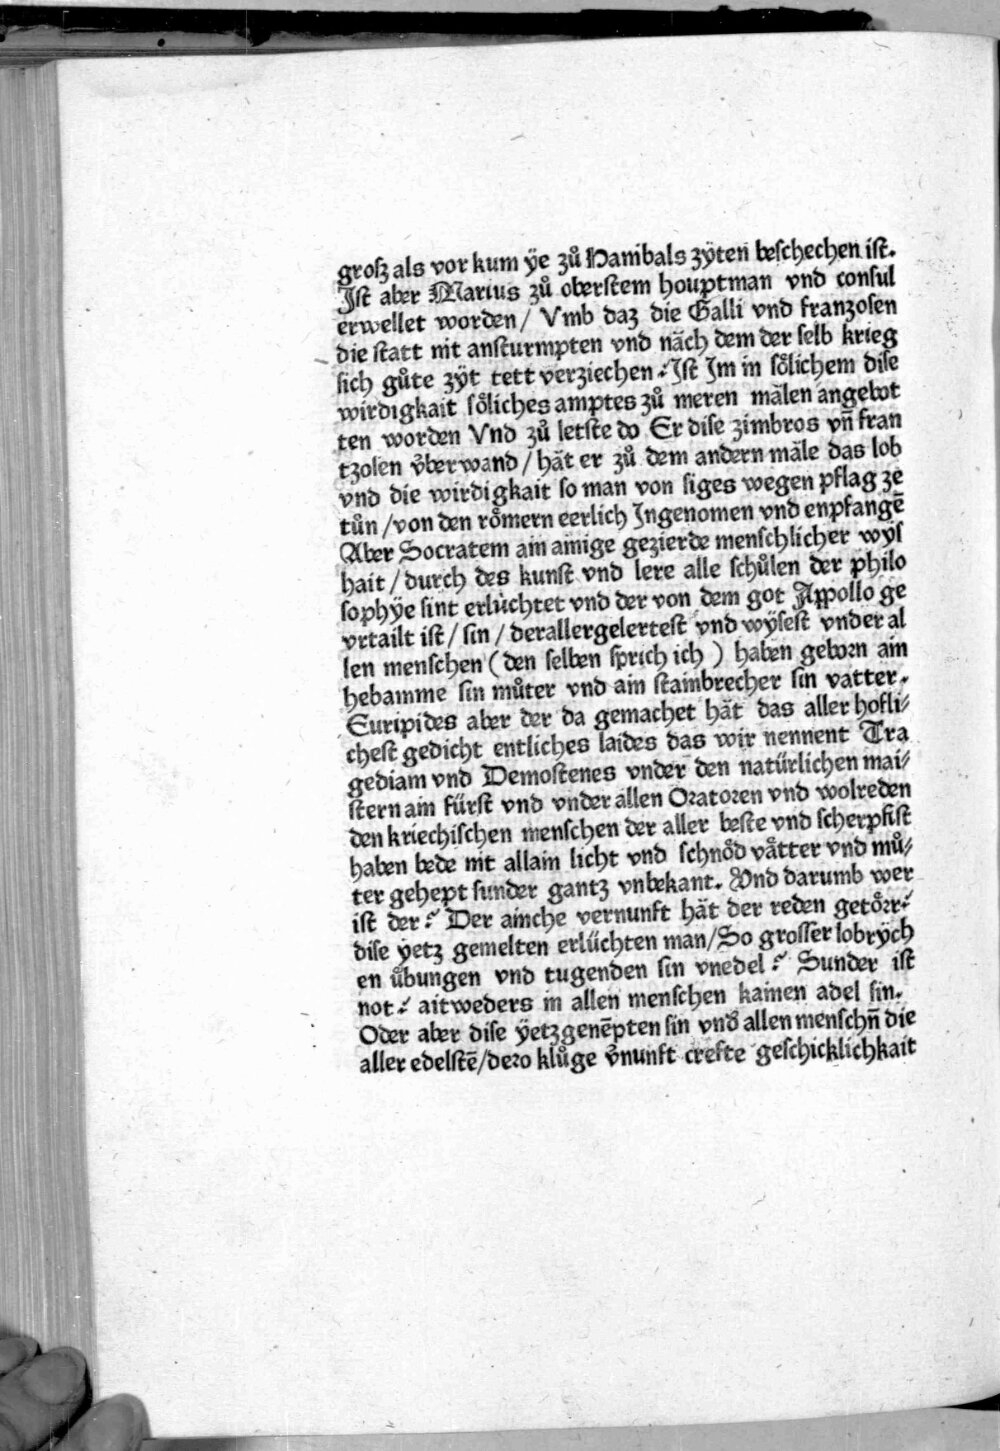 grosz als vor kum ÿe zů Hanibals zÿten beschechen ist.
Jst aber Marius zů oberstem houptman vnd consul
erwellet worden/ Vmb daz die Galli vnd franzosen
die statt nit ansturmpten vnd nǎch dem der selb krieg
sich gůte zÿt tett verziechen⸵ Jst Jm in sölichem dise
wirdigkait söliches amptes zů meren mǎlen angebot
ten worden Vnd zů letste do Er dise zimbros vn̄ fran
tzosen v̊ber wand/ hǎt er zů dem andern mǎle das lob
vnd die wirdigkait so man von siges wegen pflag ze
tůn/ von den römern eerlich Jngenomen vnd enpfangē
Aber Socratem ain ainige gezierde menschlicher wÿs
hait/ durch des kunst vnd lere alle schůlen der philo
sophÿe sint erlüchtet vnd der von dem got Appollo ge
vrtailt ist/ sin/ der allergelertest vnd wÿsest vnder al
len menschen ( den selben sprich ich ) haben geborn ain
hebamme sin můter vnd ain stainbrecher sin vatter.
Euripides aber der da gemachet hǎt das aller hofli⸗
chest gedicht entliches laides das wir nennent Tra
gediam vnd Demostenes vnder den natürlichen mai⸗
stern ain fürst vnd vnder allen Oratoren vnd wolreden
den kriechischen menschen der aller beste vnd scherpfist
haben bede nit allain licht vnd schnöd vätter vnd mů⸗
ter gehept sunder gantz vnbekant. Vnd darumb wer
ist der⸵ Der ainche vernunft hǎt der reden getörr⸵
dise ÿetz gemelten erlüchten man/ So grosser lobrÿch
en ůbungen vnd tugenden sin vnedel⸵ Sunder ist
not⸵ aitweders in allen menschen kainen adel sin.
Oder aber dise ÿetzgenēpten sin vnd̛ allen menschn̄ die
aller edelstē/ dero klůge v̊nunft crefte geschicklichkait